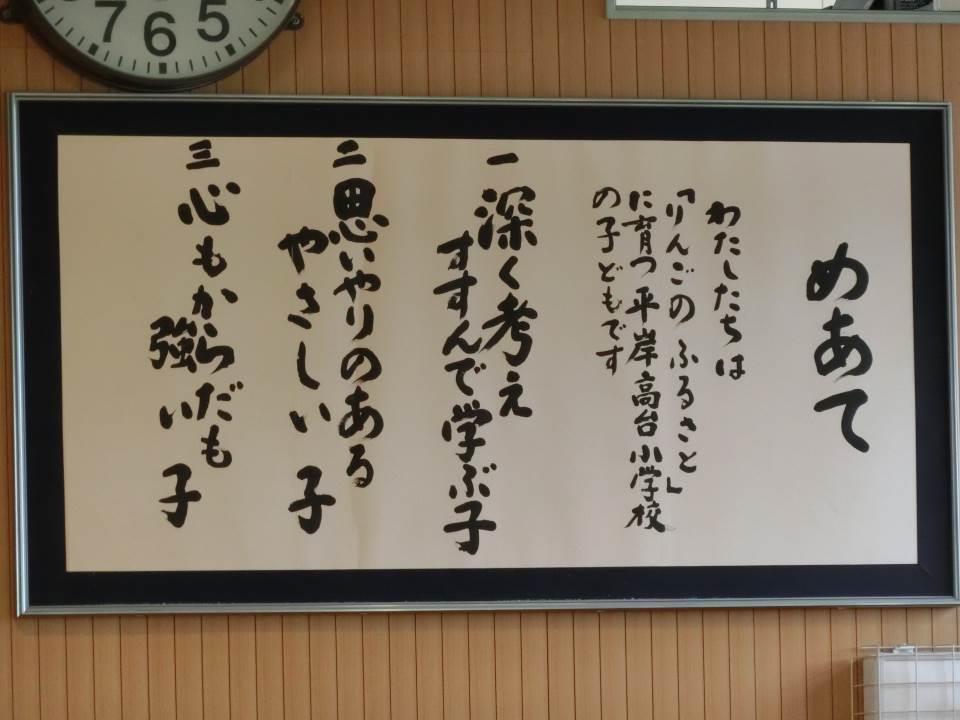 めあて
わたしたちは
「りんごの ふるさと」
に育つ平岸高台小学校
の子どもです
一 深く考え
すすんで学ぶ子
二 思いやりのある
やさしい子
三 心もからだも
強い子
7 6 5